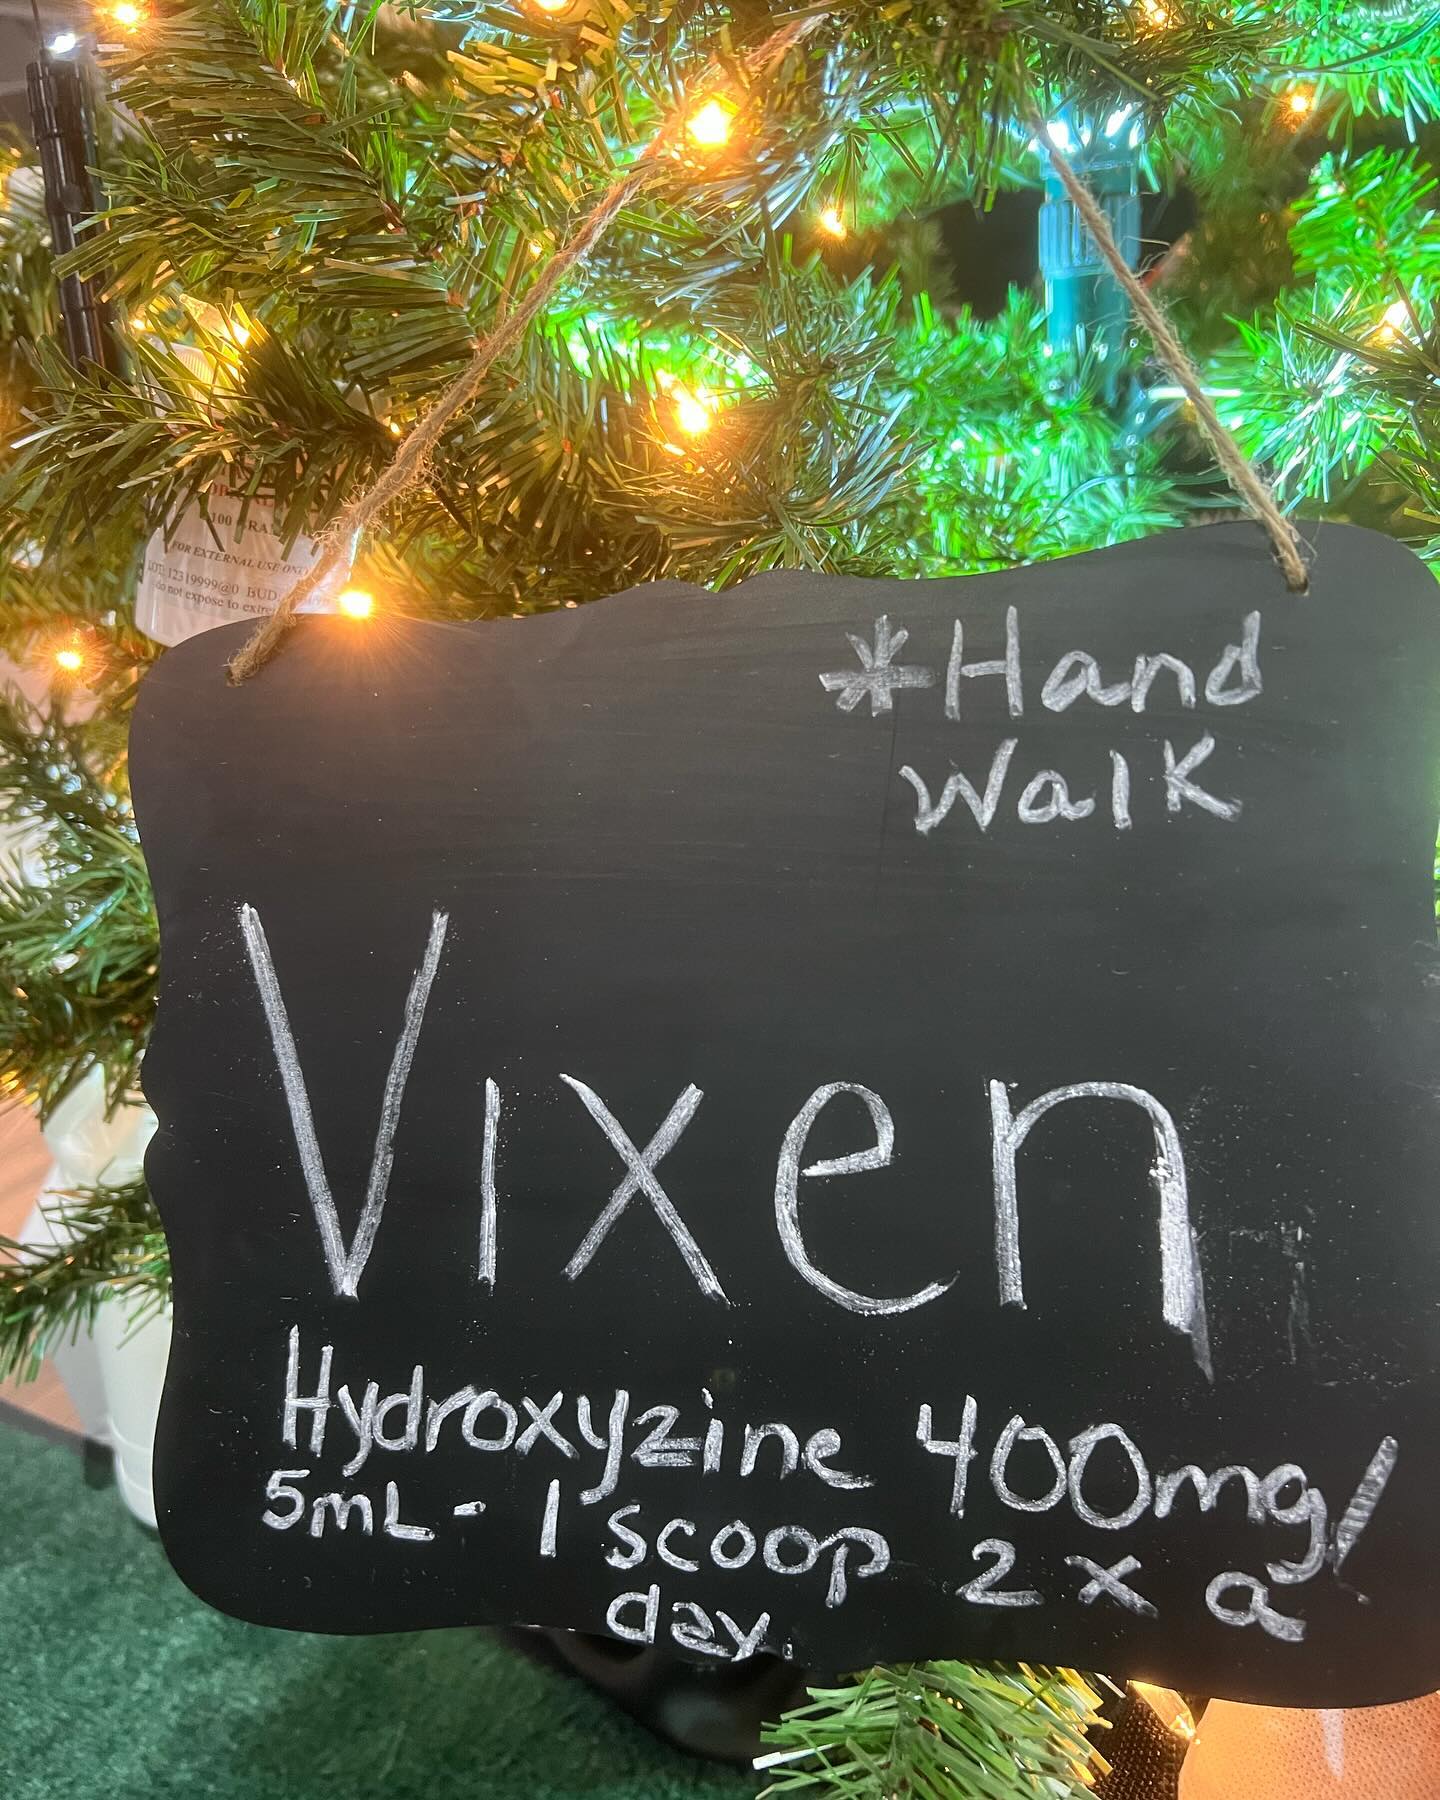 100 GRA
FOR EXTERNAL USE ONLY
LOT: 12319999@0 BUD
do not expose to
*Hand
Walk
Vixen
Hydroxyzine 400mg/
5mL - 1 scoop 2 x a
day.